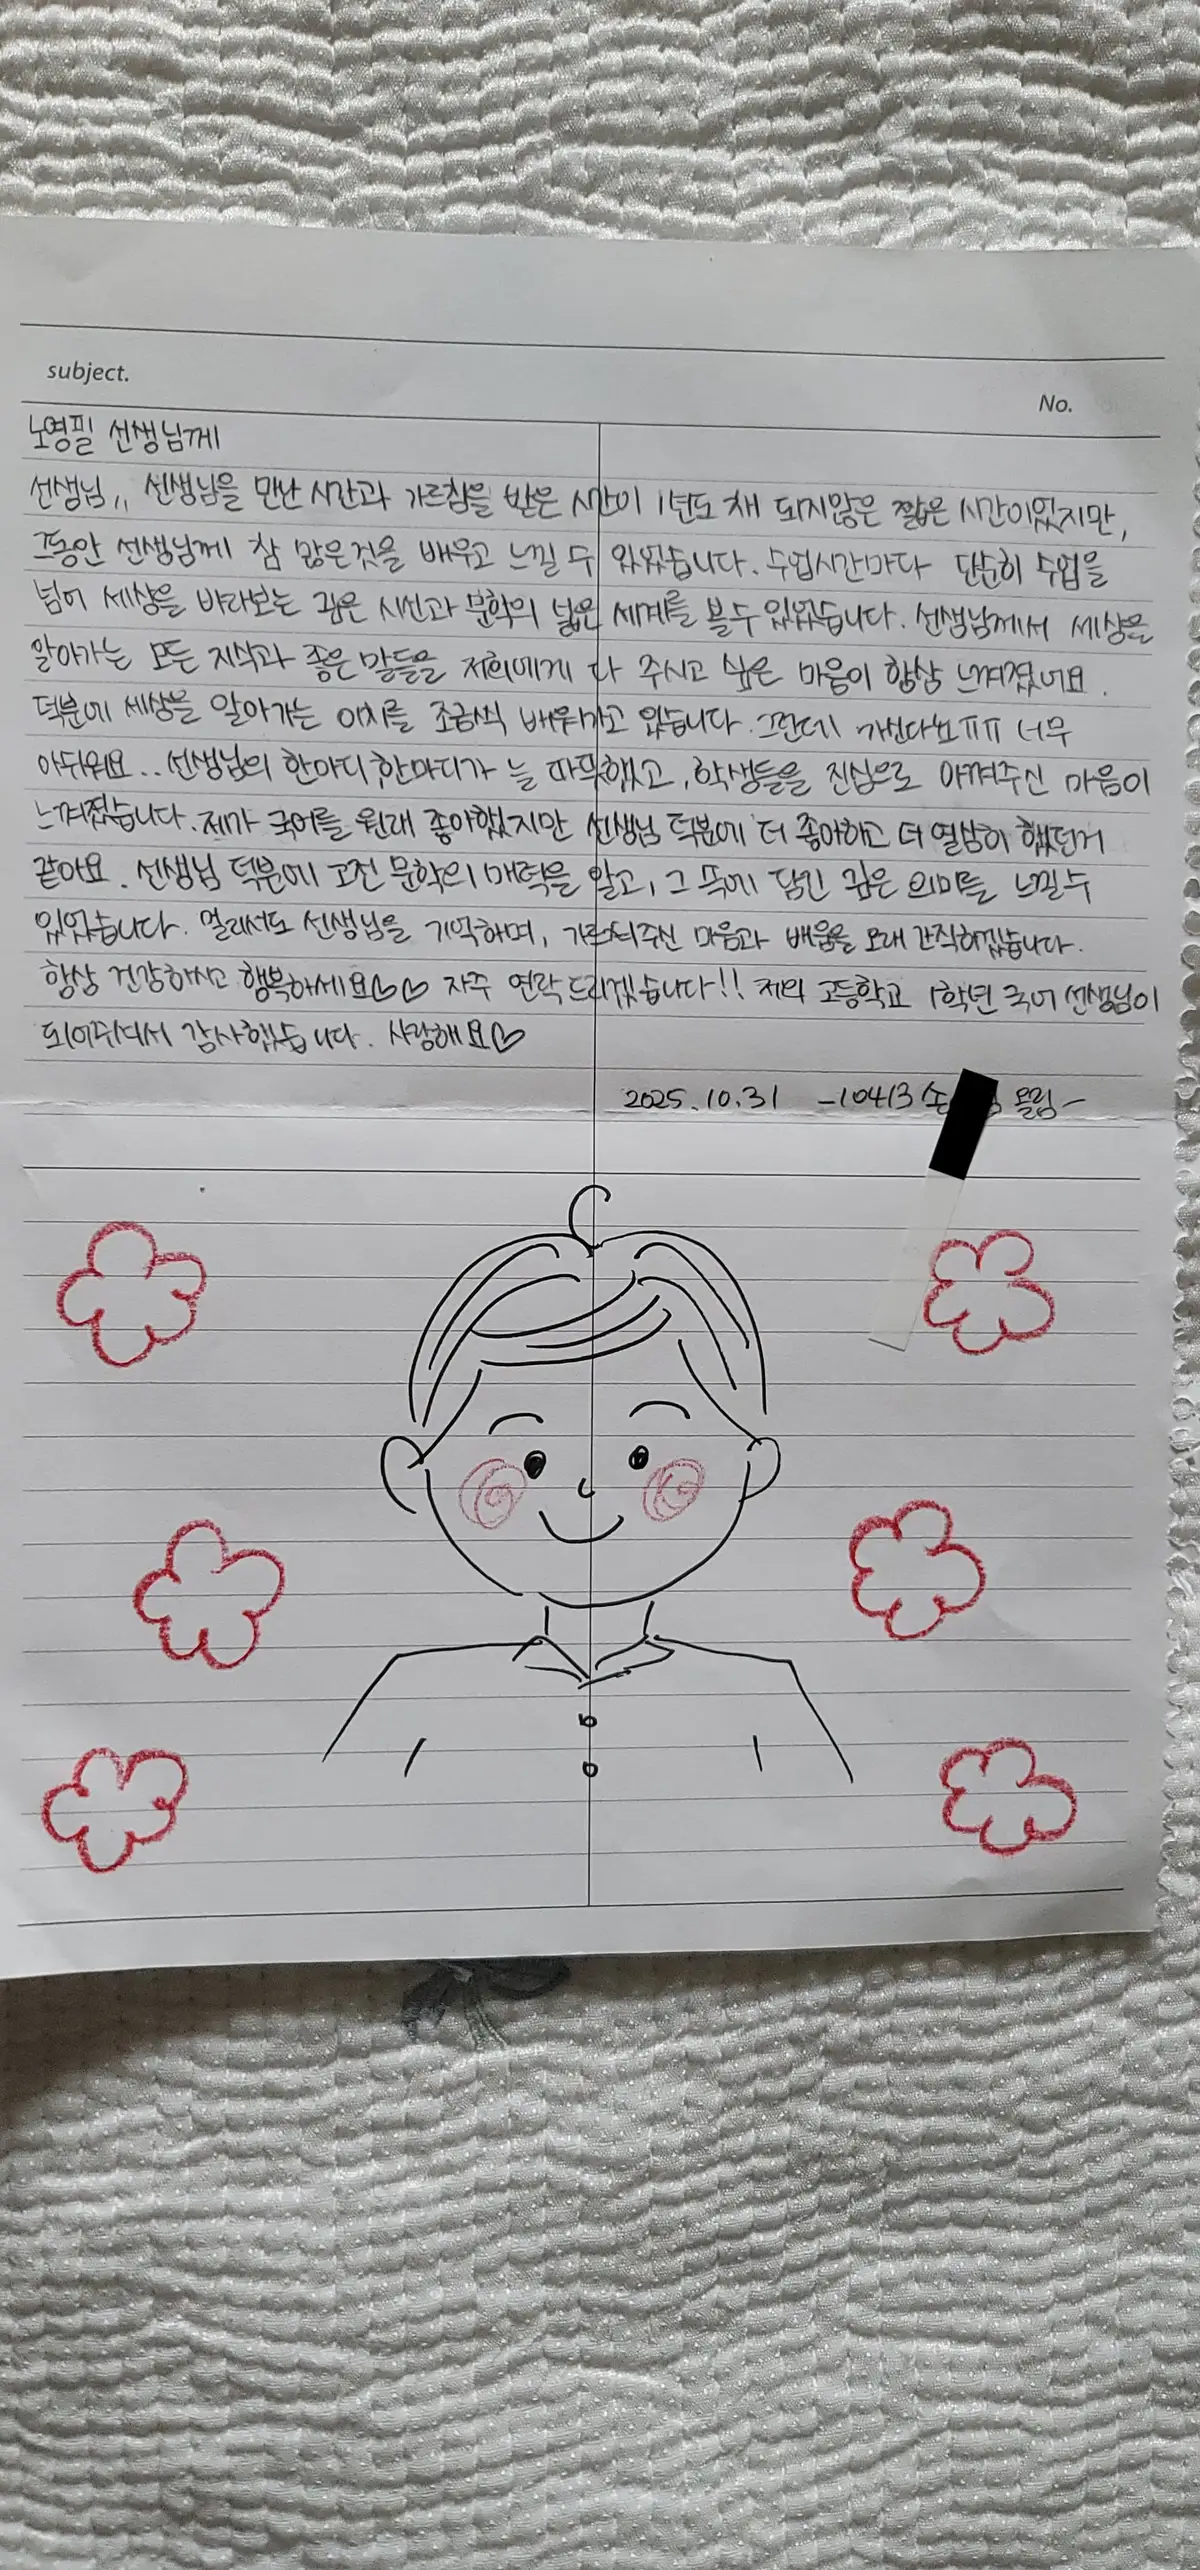 subject.
No.
노영필 선생님께
선생님,, 선생님을 만난 시간과 가르침을 받은 시간이 1년도 채 되지않은 짧은 시간이었지만,
그동안 선생님께 참 많은것을 배우고 느낄 수 있었습니다. 수업시간마다 단순히 수업을
넘어 세상을 바라보는 깊은 시선과 문학의 넓은 세계를 볼수 있었습니다. 선생님께서 세상을
알아가는 모든 지식과 좋은 말들을 저희에게 다 주시고 싶은 마음이 항상 느껴졌어요.
덕분에 세상을 알아가는 이치를 조금씩 배워가고 있습니다. 그런데 가신다뇨ㅠㅠ 너무
아쉬워요... 선생님의 한마디 한마디가 늘 따뜻했고, 학생들을 진심으로 아껴주신 마음이
느껴졌습니다. 제가 국어를 원래 좋아했지만 선생님 덕분에 더 좋아하고 더 열심히 했던거
같아요. 선생님 덕분에 고전 문학의 매력을 알고, 그 속에 담긴 깊은 의미를 느낄수
있었습니다. 멀리서도 선생님을 기억하며, 가르쳐주신 마음과 배움을 오래 간직하겠습니다.
항상 건강하시고 행복하세요♡♡ 자주 연락드리겠습니다!! 저의 고등학교 1학년 국어 선생님이
되어주셔서 감사했습니다. 사랑해요♡
2025.10.31 -10413 손 올림-